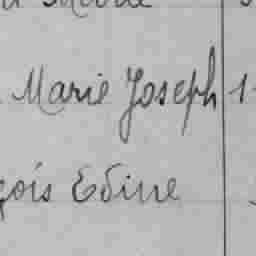 Marie Joseph 1
çois Edine